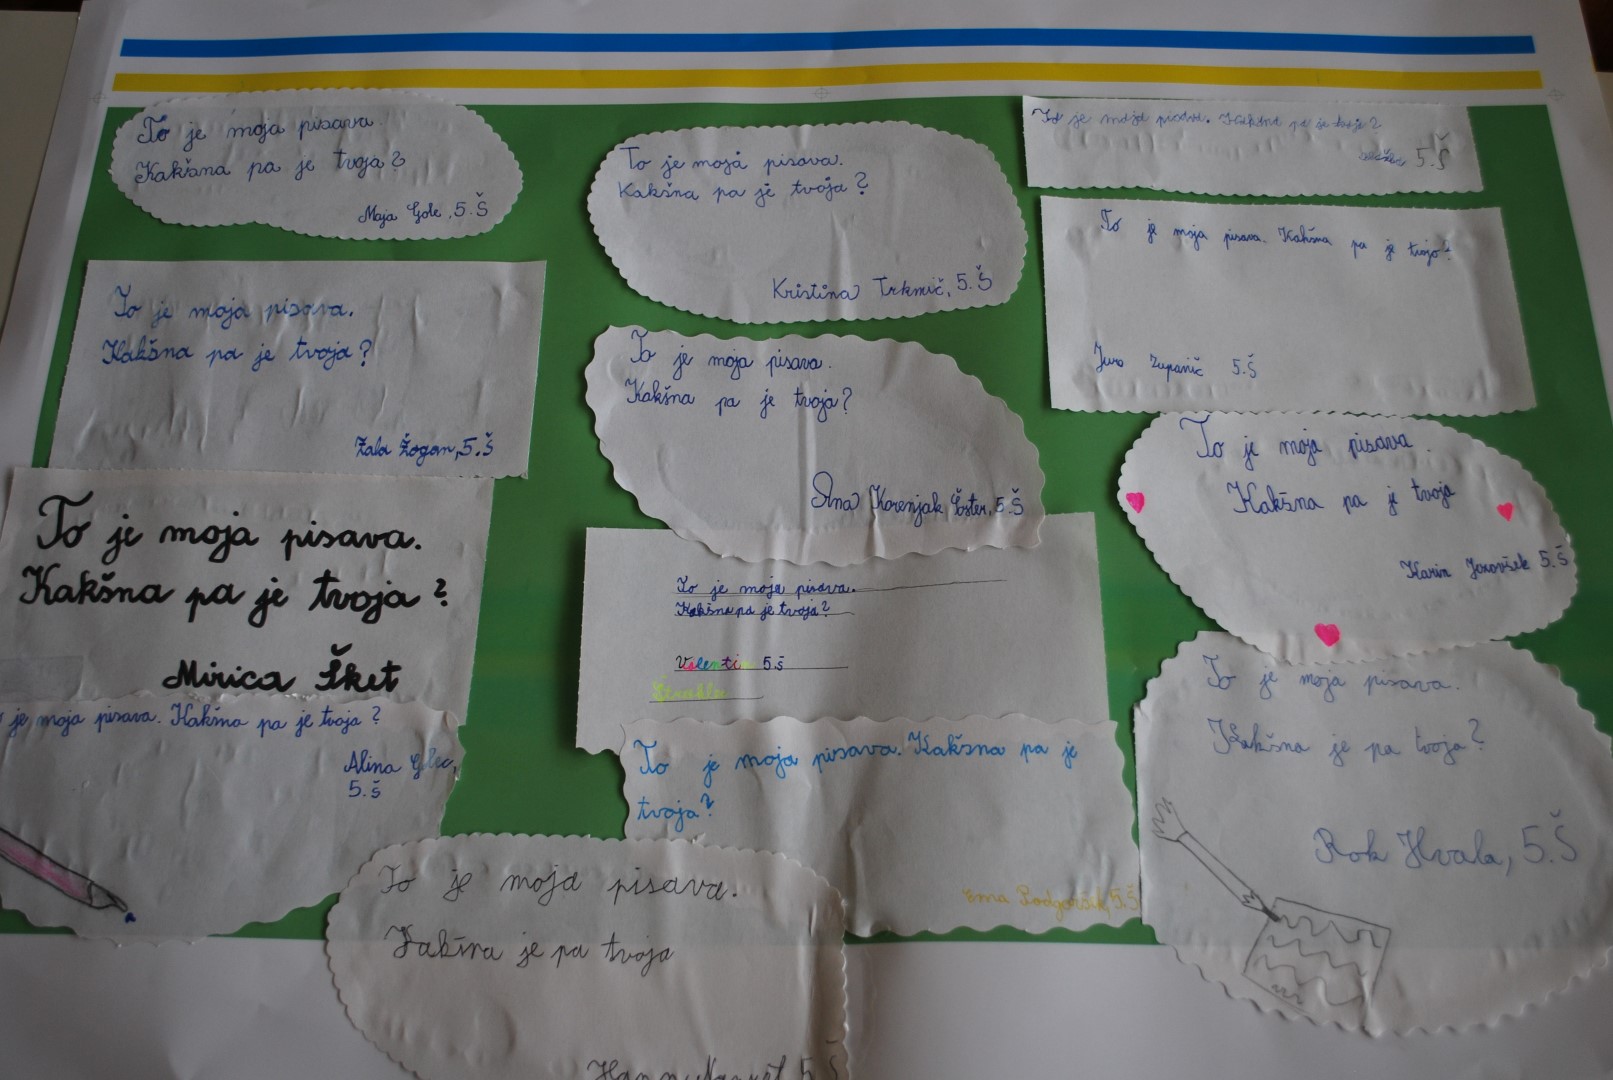 To je moja pisava.
Kakšna pa je tvoja?
Maja Gole, 5.Š
To je moja pisava.
Kakšna pa je tvoja?
Zala Žogan, 5.Š
To je moja pisava.
Kakšna pa je tvoja?
Mirica Šket
je moja pisava. Kakšna pa je tvoja?
Alina Golec,
5.š
To je moja pisava.
Kakšna pa je tvoja?
Kristina Trkmič, 5.Š
To je moja pisava.
Kakšna pa je tvoja?
Ana Korenjak Šoster, 5.Š
To je moja pisava.
Kakšna pa je tvoja?
Valentin 5.š
To je moja pisava. Kakšna pa je
tvoja?
Ema Podgoršek, 5.Š
To je moja pisava.
Kakšna je pa tvoja
5 Š
To je moja pisava. Kakšna pa je tvoja?
5.Š
To je moja pisava. Kakšna pa je tvoja?
Zupanič 5.Š
To je moja pisava.
Kakšna pa je tvoja
Karin 5.Š
To je moja pisava.
Kakšna je pa tvoja?
Rok Hvala, 5.Š